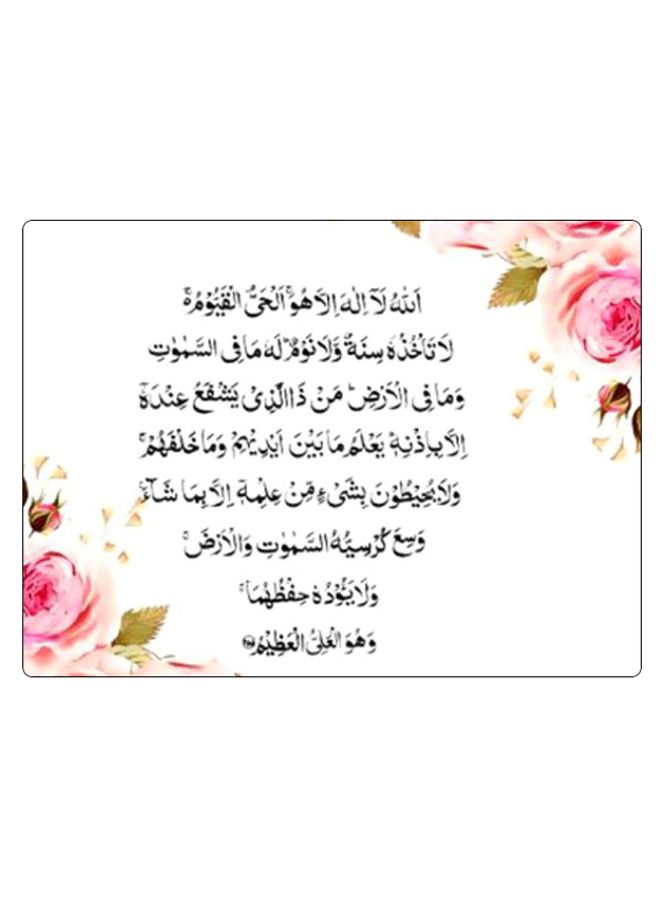 اَللّٰهُ لَاۤ اِلٰهَ اِلَّا هُوَۚ اَلْحَیُّ الْقَیُّوْمُ۬ۚ
لَا تَاْخُذُهٗ سِنَةٌ وَّلَا نَوْمٌؕ لَهٗ مَا فِی السَّمٰوٰتِ
وَمَا فِی الْاَرْضِؕ مَنْ ذَا الَّذِیْ یَشْفَعُ عِنْدَهٗۤ
اِلَّا بِاِذْنِهٖؕ یَعْلَمُ مَا بَیْنَ اَیْدِیْهِمْ وَمَا خَلْفَهُمْۚ
وَلَا یُحِیْطُوْنَ بِشَیْءٍ مِّنْ عِلْمِهٖۤ اِلَّا بِمَا شَآءَۚ
وَسِعَ كُرْسِیُّهُ السَّمٰوٰتِ وَالْاَرْضَۚ
وَلَا یَـُٔوْدُهٗ حِفْظُهُمَاۚ
وَهُوَ الْعَلِیُّ الْعَظِیْمُ ۝۲۵۵